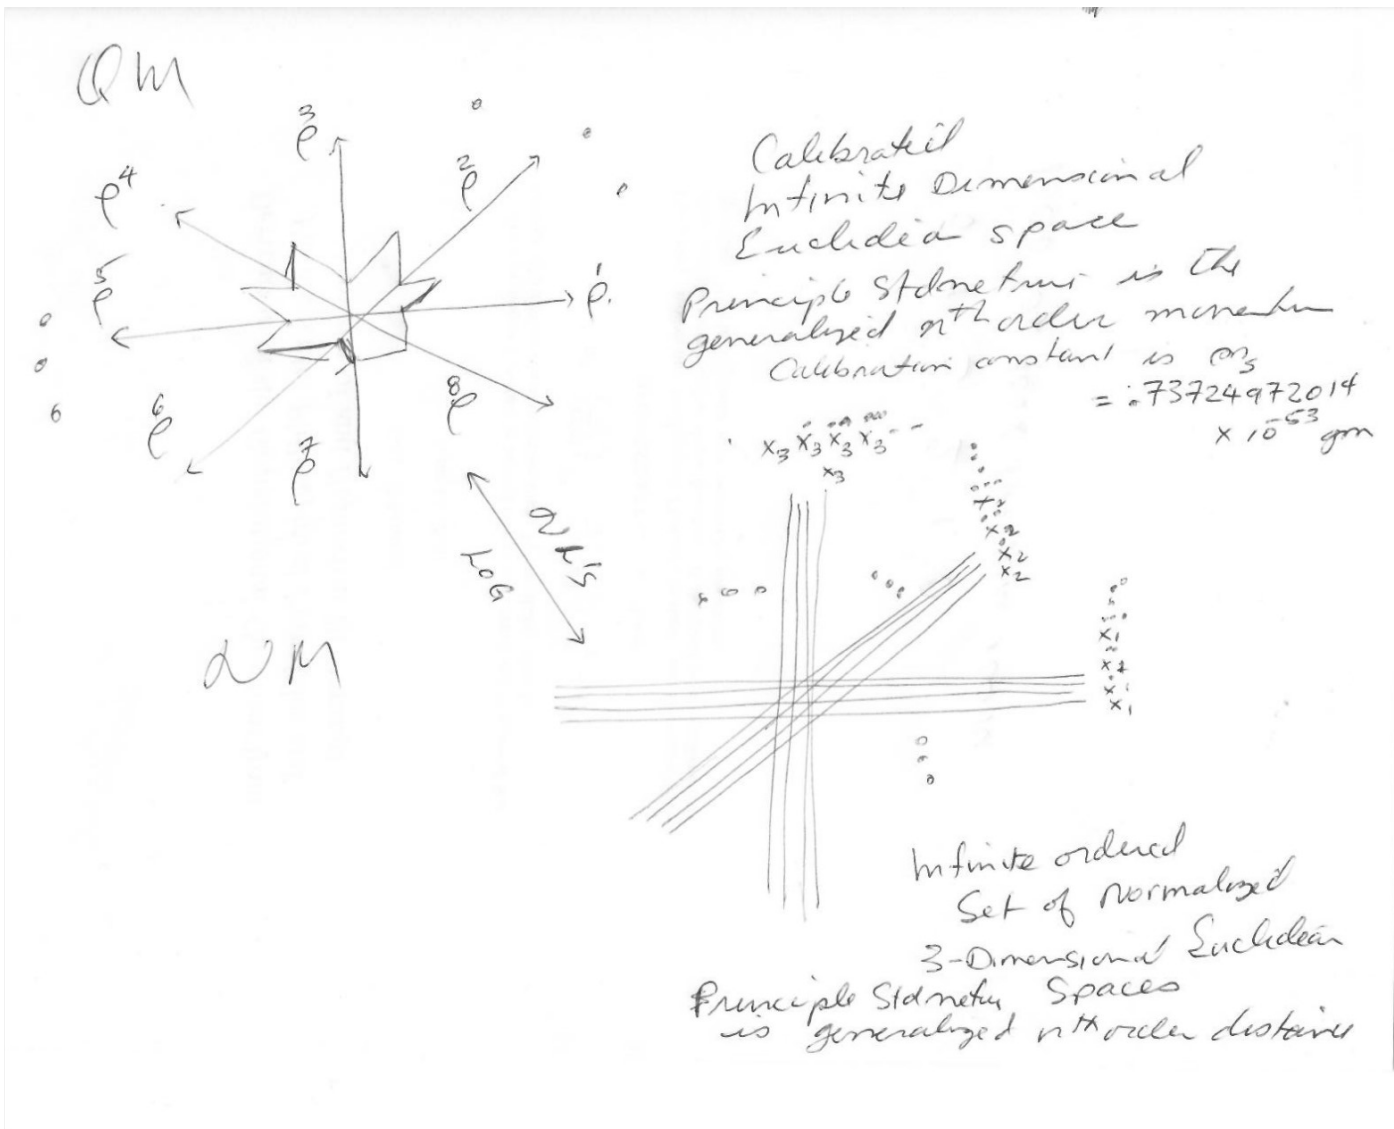 QM
ρ³
ρ²
ρ⁴
ρ¹
ρ⁵
ρ⁶
ρ⁷
ρ⁸
Calibrated
Infinite Dimensional
Euclidean space
Principle Stdmetric is the
generalized nth order momentum
Calibration constant is m₅
= .73724972014
× 10⁻⁵³ gm
x₃ ẋ₃ ẍ₃ x₃
x₃
x₂
x₂
x₂
x₂
NL's
LOG
NM
x₁
x₁
x₁
x₁
Infinite ordered
Set of Normalized
3-Dimensional Euclidean
Spaces
Principle Stdmetric
is generalized nth order distance